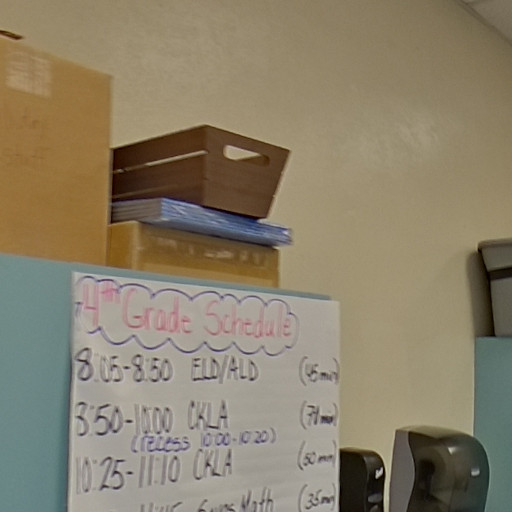 4th Grade Schedule
8:05-8:50 ELD/ALD (45 min)
8:50-10:00 CKLA (70 min)
(recess 10:00-10:20)
10:25-11:10 CKLA (50 min)
Math (35 min)